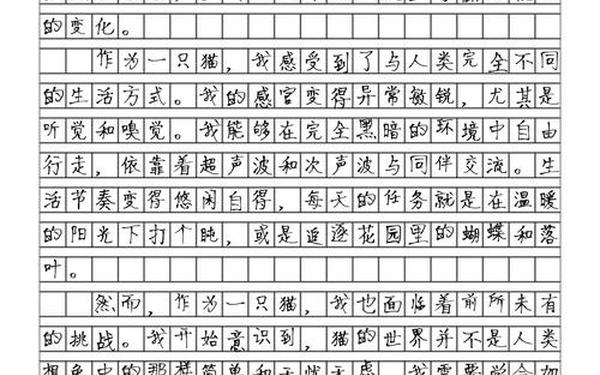 的变化。
作为一只猫，我感受到了与人类完全不同
的生活方式。我的感官变得异常敏锐，尤其是
听觉和嗅觉。我能够在完全黑暗的环境中自由
行走，依靠着超声波和次声波与同伴交流。生
活节奏变得悠闲自得，每天的任务就是在温暖
的阳光下打个盹，或是追逐花园里的蝴蝶和落
叶。
然而，作为一只猫，我也面临着前所未有
的挑战。我开始意识到，猫的世界并不是人类
想象中的那样简单和无忧无虑。我需要学会如